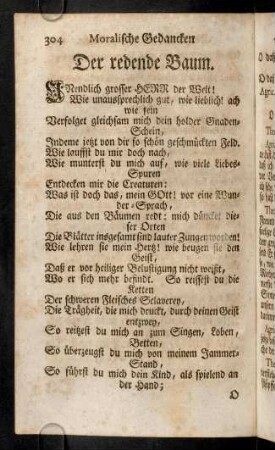 304 Moralische Gedancken
Der redende Baum.
UNendlich grosser HERR der Welt!
Wie unaussprechlich gut, wie lieblich! ach
wie rein
Verfolget gleichsam mich dein holder Gnaden-
Schein,
Indeme jetzt von dir so schön geschmückten Feld.
Wie lauffst du mir doch nach,
Wie munterst du mich auf, wie viele Liebes-
Spuren
Entdecken mir die Creaturen:
Was ist doch das, mein GOtt! vor eine Wun-
der-Sprach,
Die aus den Bäumen redt: mich düncket die-
ser Orten
Die Blätter insgesamt sind lauter Zungen worden!
Wie lehren sie mein Hertz! wie beugen sie den
Geist,
Daß er vor heiliger Belustigung nicht weißt,
Wo er sich mehr befindt. So reissest du die
Ketten
Der schweren Fleisches Sclaverey,
Die Trägheit, die mich druckt, durch deinen Geist
entzwey,
So reitzest du mich an zum Singen, Loben,
Betten,
So überzeugst du mich von meinem Jammer-
Stand,
So führst du mich dein Kind, als spielend an
der Hand;
O